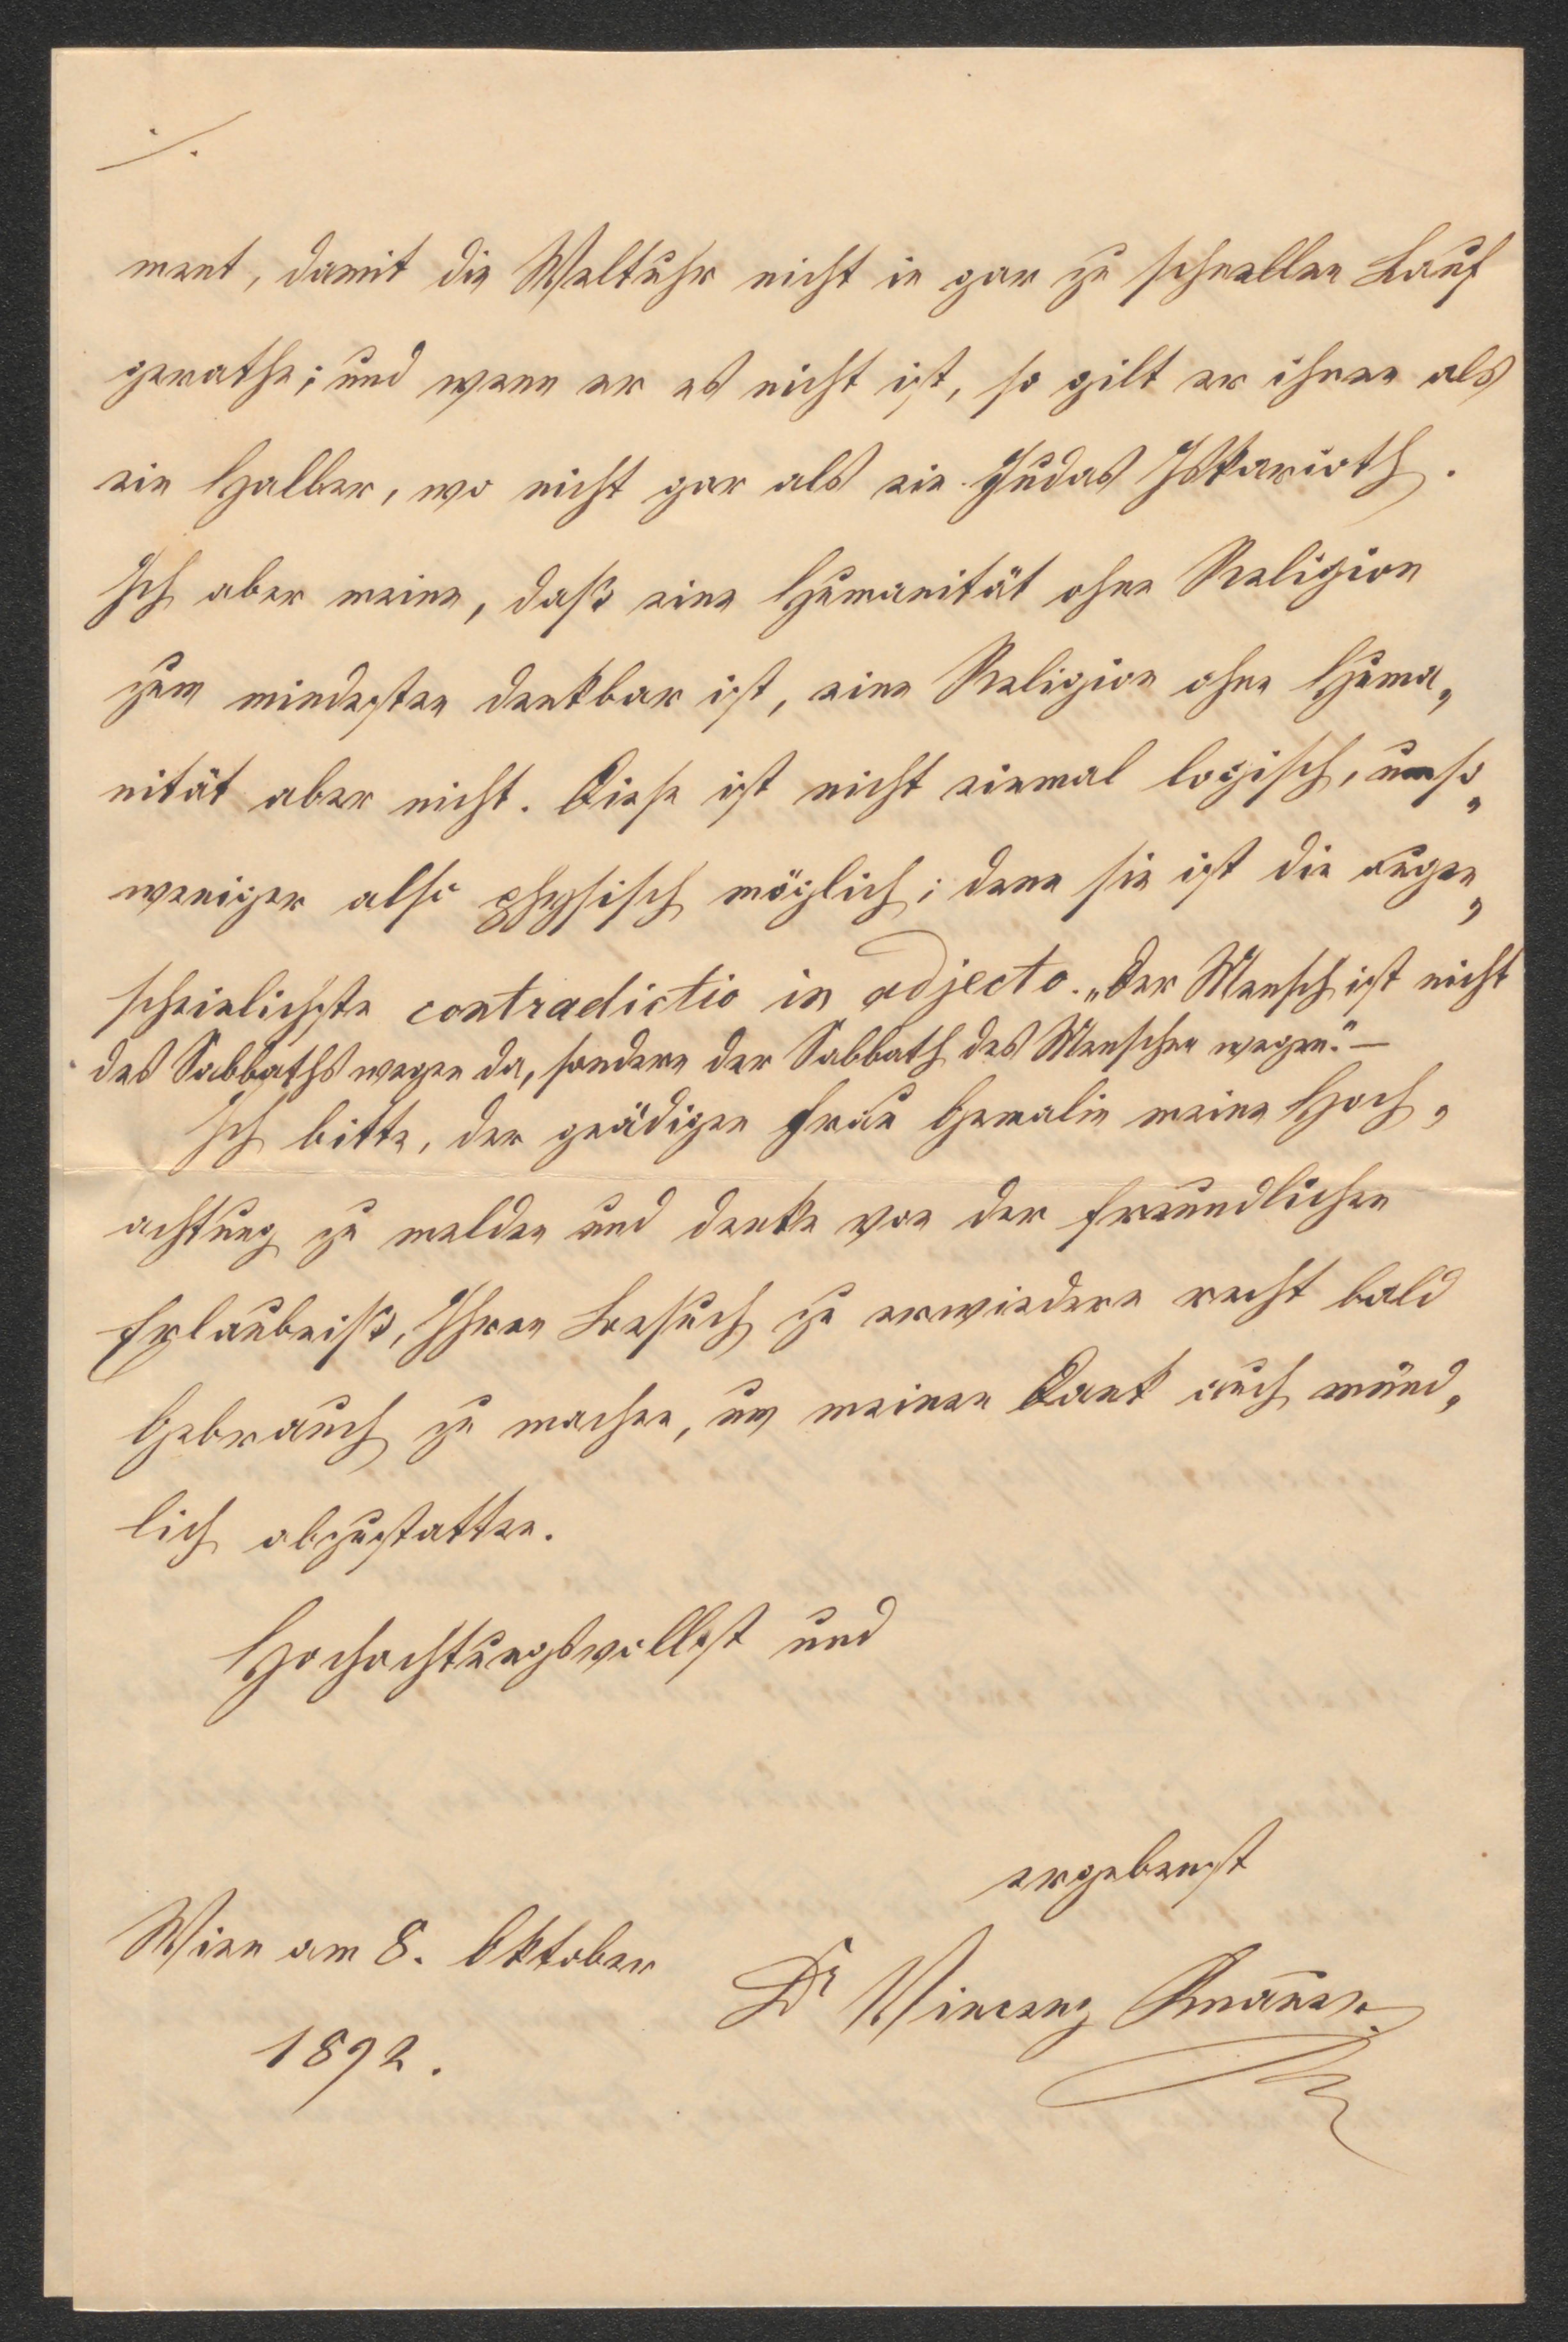 ./.
ment, damit die Weltuhr nicht in gar zu schnellen Lauf
gerathe; und wenn er es nicht ist, so gilt er ihnen als
ein Halber, wo nicht gar als ein Judas Iskarioth.
Ich aber meine, daß eine Humanität ohne Religion
zum mindesten denkbar ist, eine Religion ohne Huma„
nität aber nicht. Diese ist nicht einmal logisch, umso„
weniger also physisch möglich; denn sie ist die augen„
scheinlichste contradictio in adjecto. „Der Mensch ist nicht
des Sabbaths wegen da, sondern der Sabbath des Menschen wegen.“ –
Ich bitte, der gnädigen Frau Gemalin meine Hoch„
achtung zu melden und denke von der freundlichen
Erlaubniß, Ihren Besuch zu erwiedern recht bald
Gebrauch zu machen, um meinen Dank auch münd„
lich abzustatten.
Hochachtungsvollst und
ergebenst
Wien am 8. Oktober
Dr Vincenz Knauer
1892.